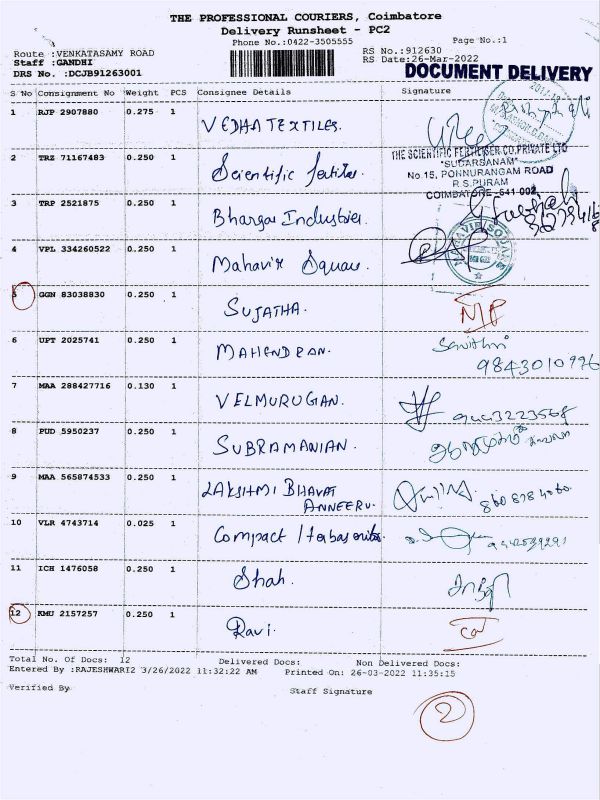 THE PROFESSIONAL COURIERS, Coimbatore
Delivery Runsheet - PC2
Phone No.:0422-3505555
Page No.:1
Route :VENKATASAMY ROAD
RS No.:912630
Staff :GANDHI
RS Date:26-Mar-2022
DRS No. :DCJB91263001
DOCUMENT DELIVERY
S No Consignment No Weight PCS Consignee Details Signature
1 RJP 2907880 0.275 1 VEDHA TEXTILES.
2 TRZ 71167483 0.250 1 Scientific
THE SCIENTIFIC FERTILISER CO.PRIVATE LTD
"SUDARSANAM"
No 15, PONNURANGAM ROAD
R.S.PURAM
COIMBATORE -641 002
3 TRP 2521875 0.250 1 Bhargav Industries
4 VPL 334260522 0.250 1 Mahavir Square.
5 GGN 83038830 0.250 1 SUJATHA.
6 UPT 2025741 0.250 1 MAHENDRAN. Savithri
7 MAA 288427716 0.130 1 VELMURUGAN.
8 PUD 5950237 0.250 1 SUBRAMANIAN.
9 MAA 565874533 0.250 1 LAKSHMI BHAVAT
ANNEERU.
10 VLR 4743714 0.025 1 Compact
11 ICH 1476058 0.250 1 Shah.
12 KMU 2157257 0.250 1 Ravi.
Total No. Of Docs: 12 Delivered Docs: Non Delivered Docs:
Entered By :RAJESHWARI2 3/26/2022 11:32:22 AM Printed On: 26-03-2022 11:35:15
Verified By Staff Signature
2